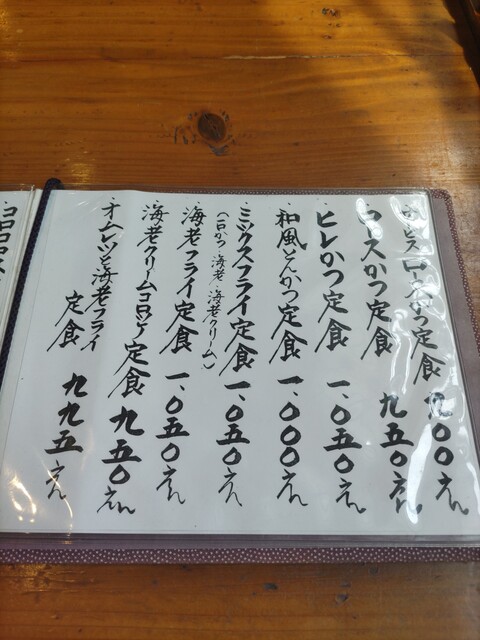 ・サービスロースかつ定食 九〇〇えん
・ロースかつ定食 九五〇えん
・ヒレかつ定食 一、〇五〇えん
・和風とんかつ定食 一、〇〇〇えん
・ミックスフライ定食 一、〇五〇えん
(一口かつ・海老・海老クリーム)
・海老フライ定食 一、〇五〇えん
・海老クリームコロッケ定食 九五〇えん
・オムレツと海老フライ定食 九九五えん